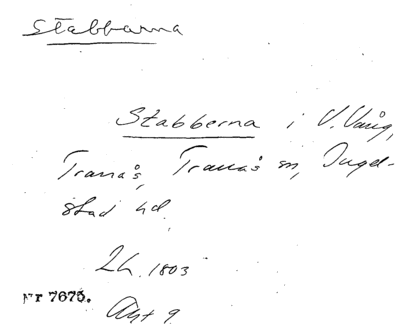 Stabbarna
Stabberna i V. Vång,
Tranås, Tranås sn, Ingel-
stad hd.
Lh. 1803
Nr 7675.
Akt 9